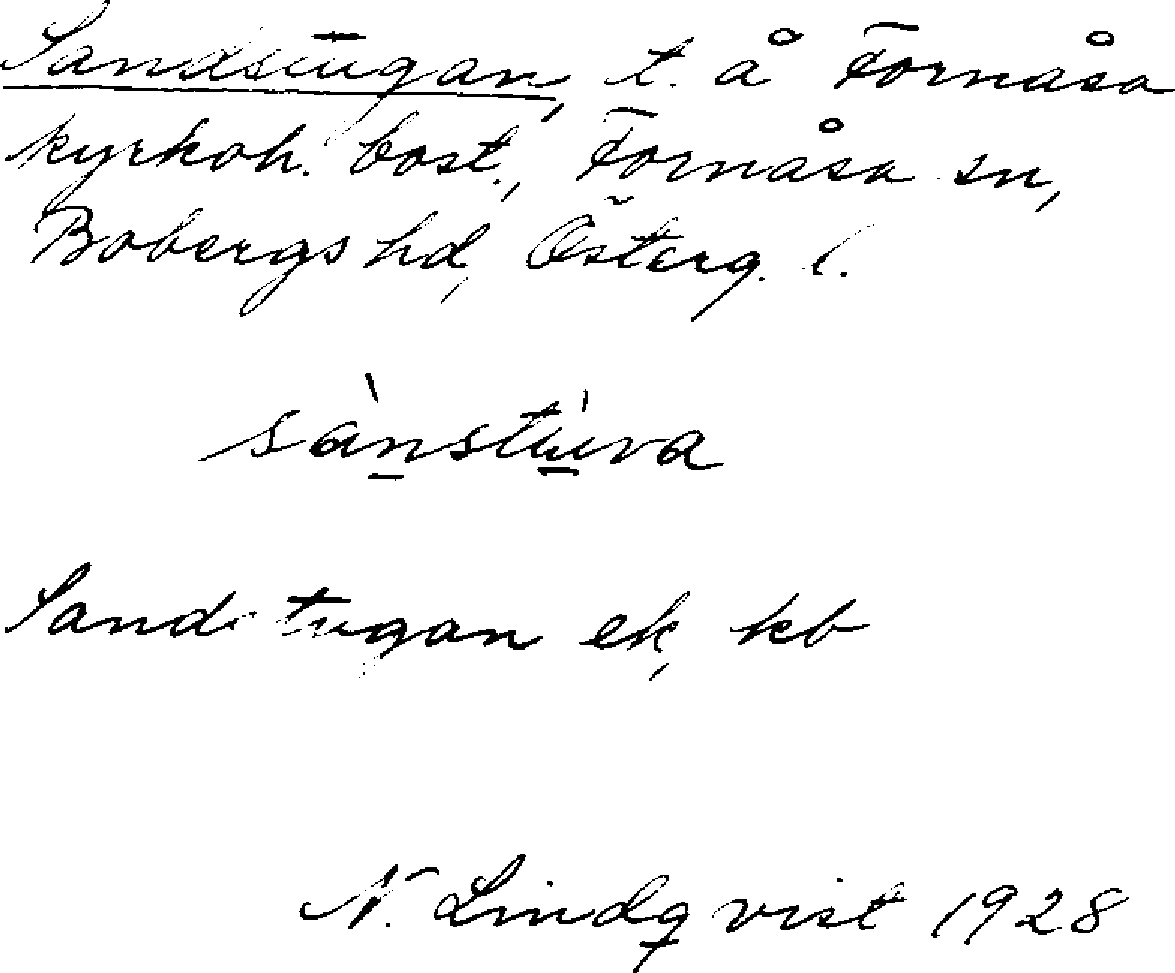 Sandstugan, t. å Fornåsa
kyrkoh. bost., Fornåsa sn,
Bobergs hd, Österg. l.
sànstùva
Sandstugan ek, kb
N. Lindqvist 1928